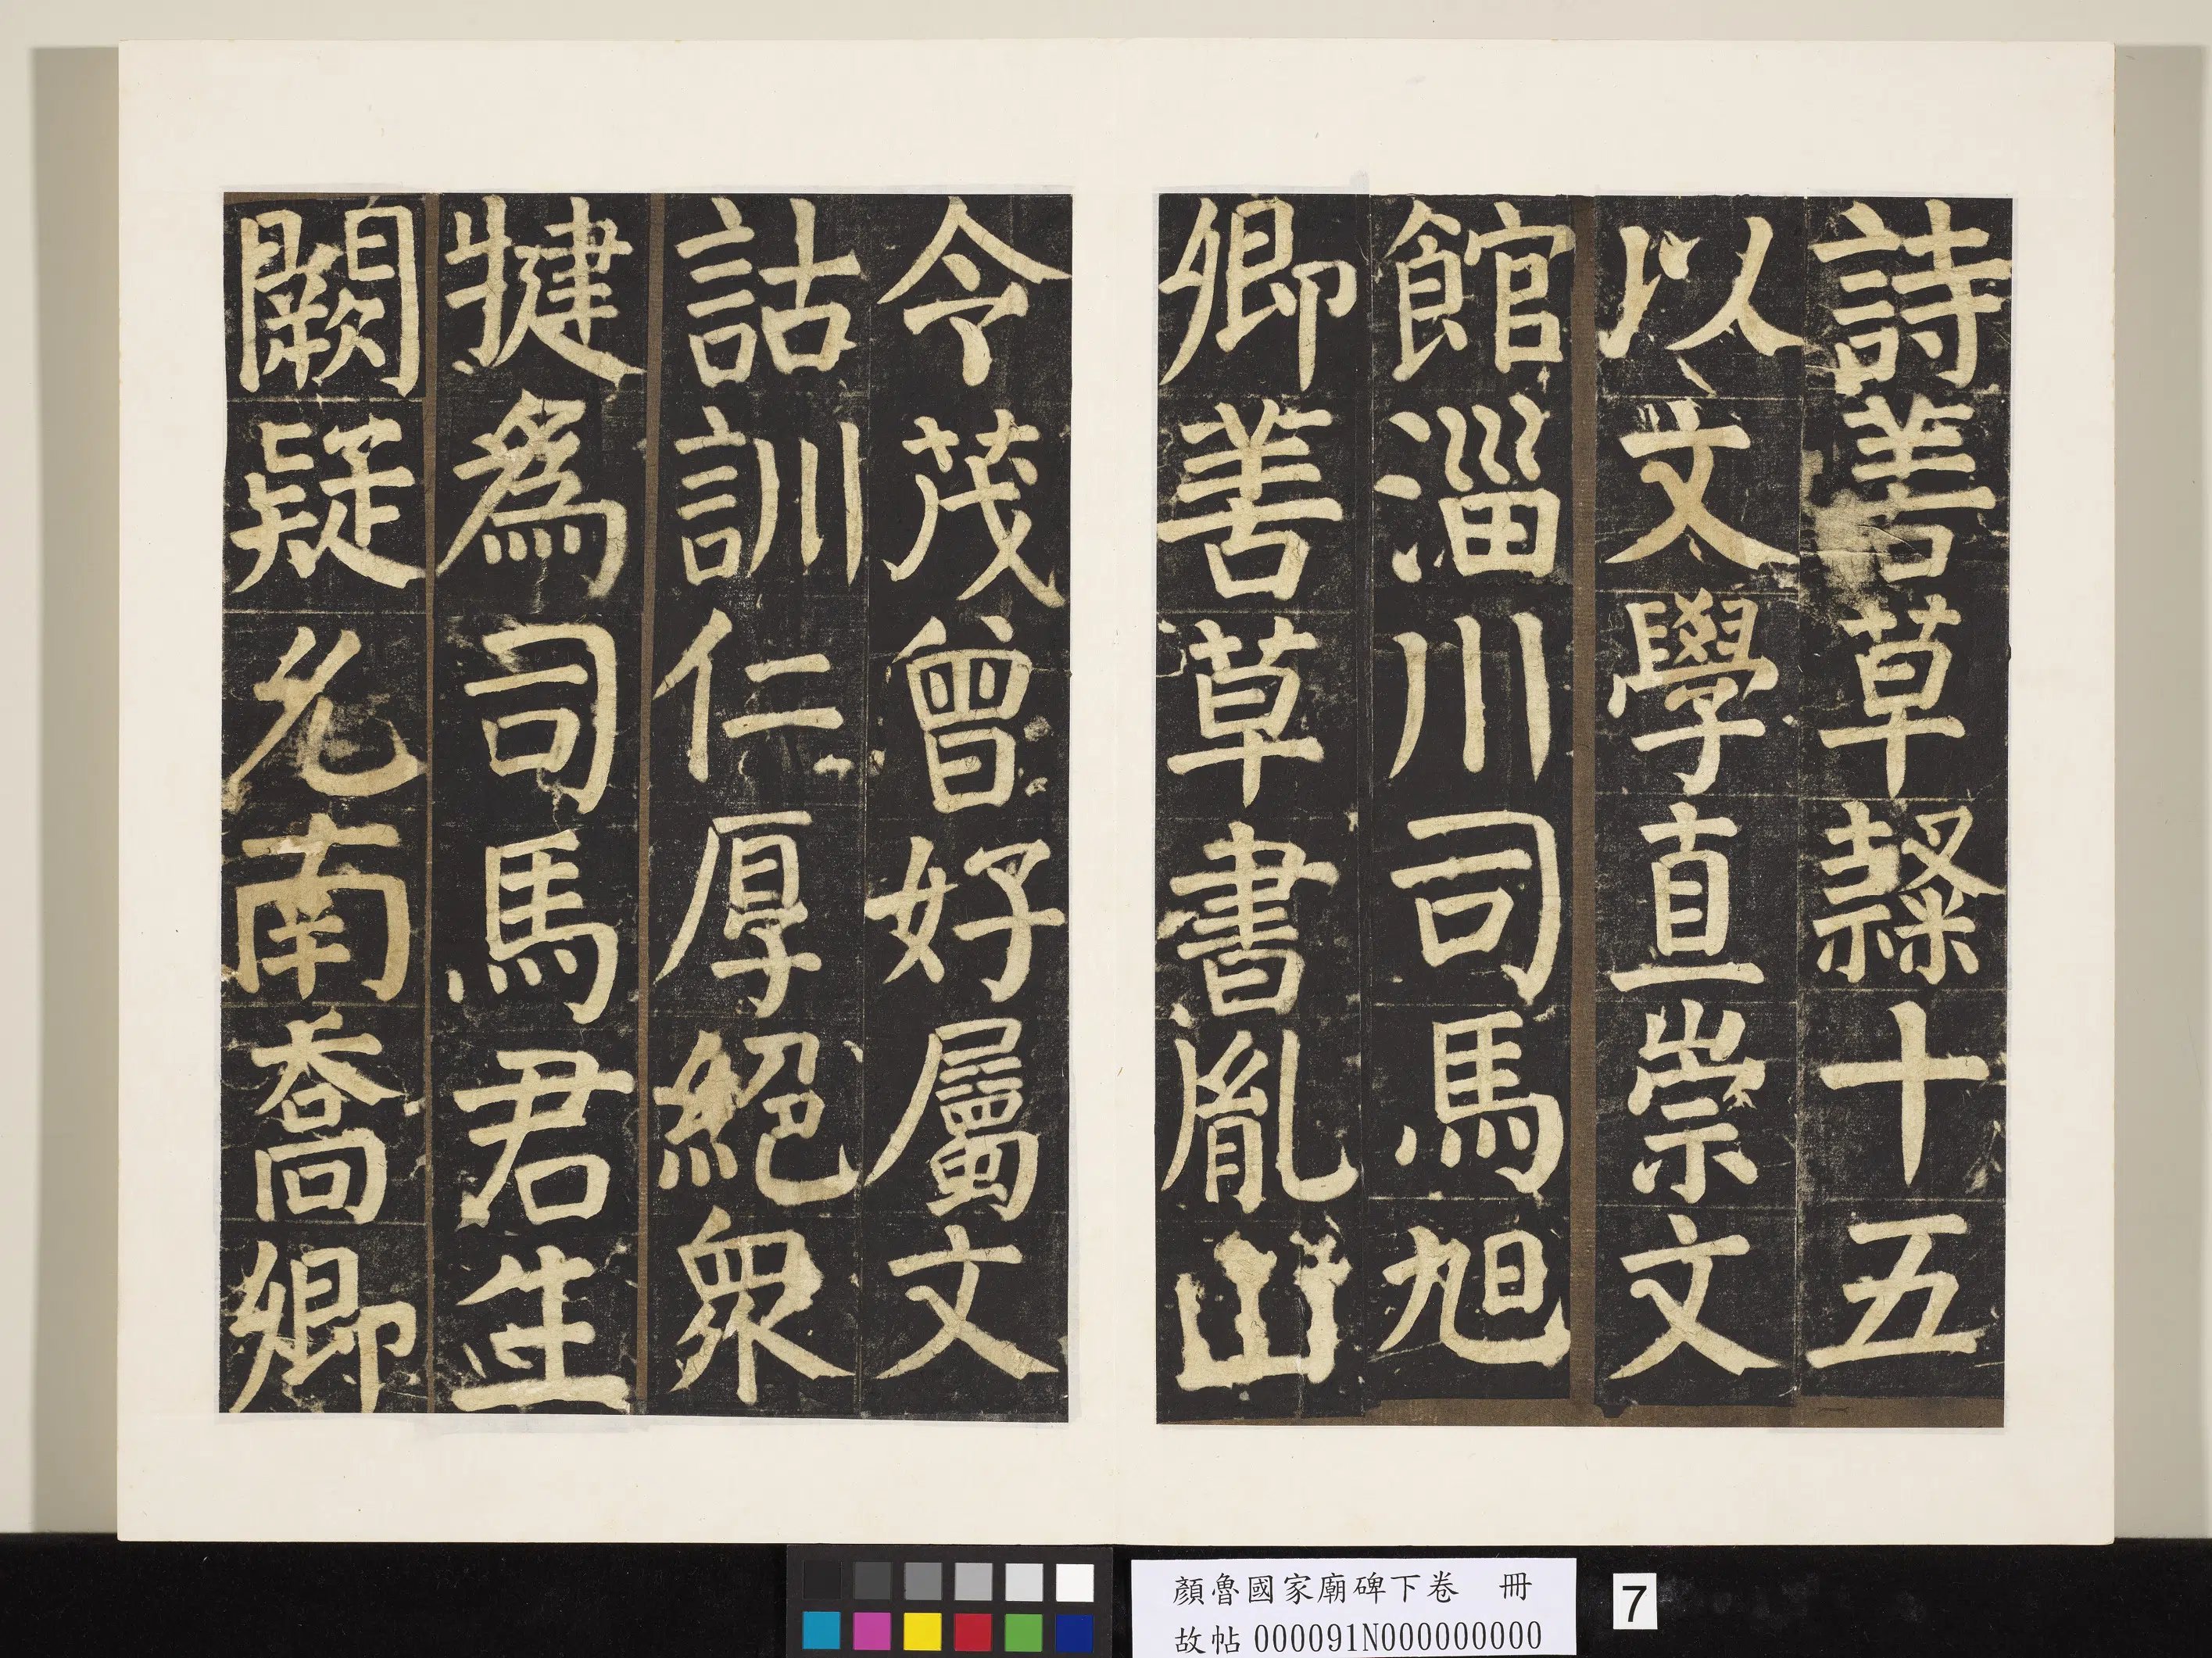 詩善草隸十五
以文學直崇文
館淄川司馬旭
卿善草書胤山
令茂曾好屬文
詁訓仁厚絕衆
犍為司馬君生
闕疑允南喬卿
顏魯國家廟碑下卷 冊
故帖000091N000000000
7